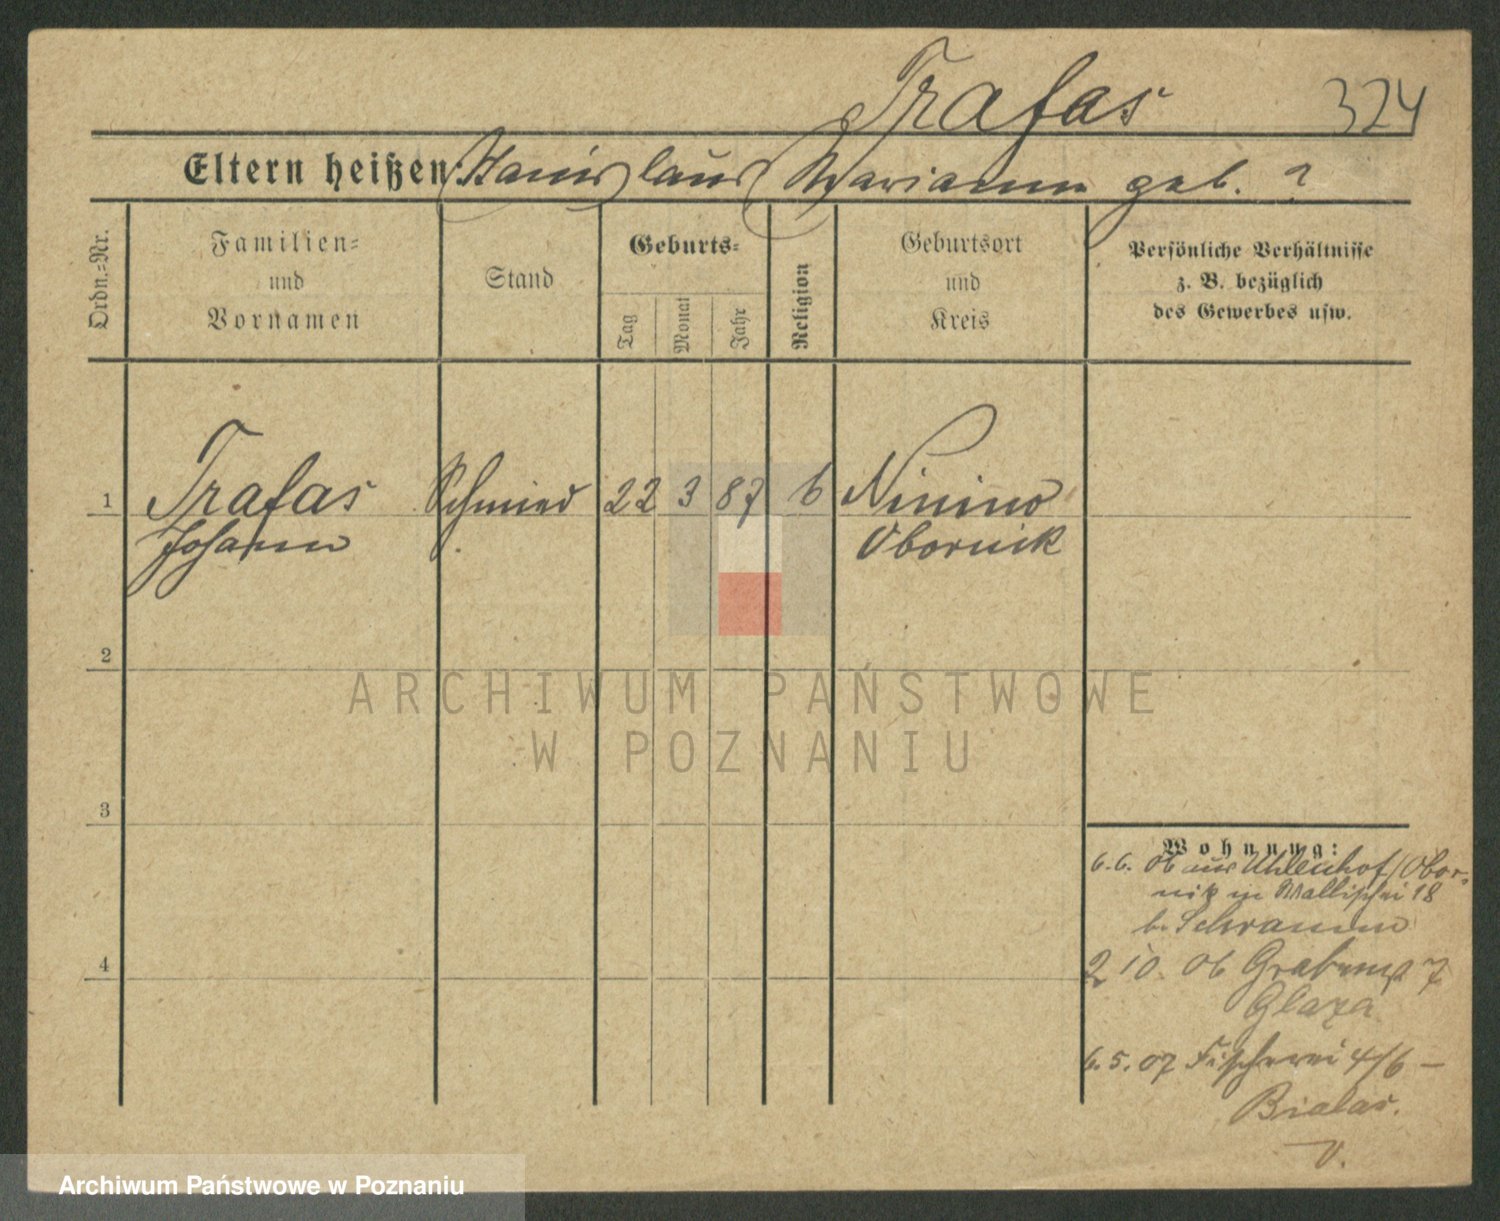 Trafas 324
Eltern heißen: Stanislaus Marianna geb. ?
Ordn.=Nr.
Familien=
und
Vornamen
Stand
Geburts=
Tag
Monat
Jahr
Religion
Geburtsort
und
Kreis
Persönliche Verhältnisse
z. B. bezüglich
des Gewerbes usw.
1 Trafas Schmied 22 3 87 Ninino
Johann Obornik
2
3
4
Wohnung:
6.6. 06 aus Uhlenhof/Obor-
nik in Wallischei 18
b. Schramm
2 10. 06 Grabenst 7
Glaza
6.5.07 Fischerei 4/6 –
Bialas.
v.
ARCHIWUM PAŃSTWOWE
W POZNANIU
Archiwum Państwowe w Poznaniu